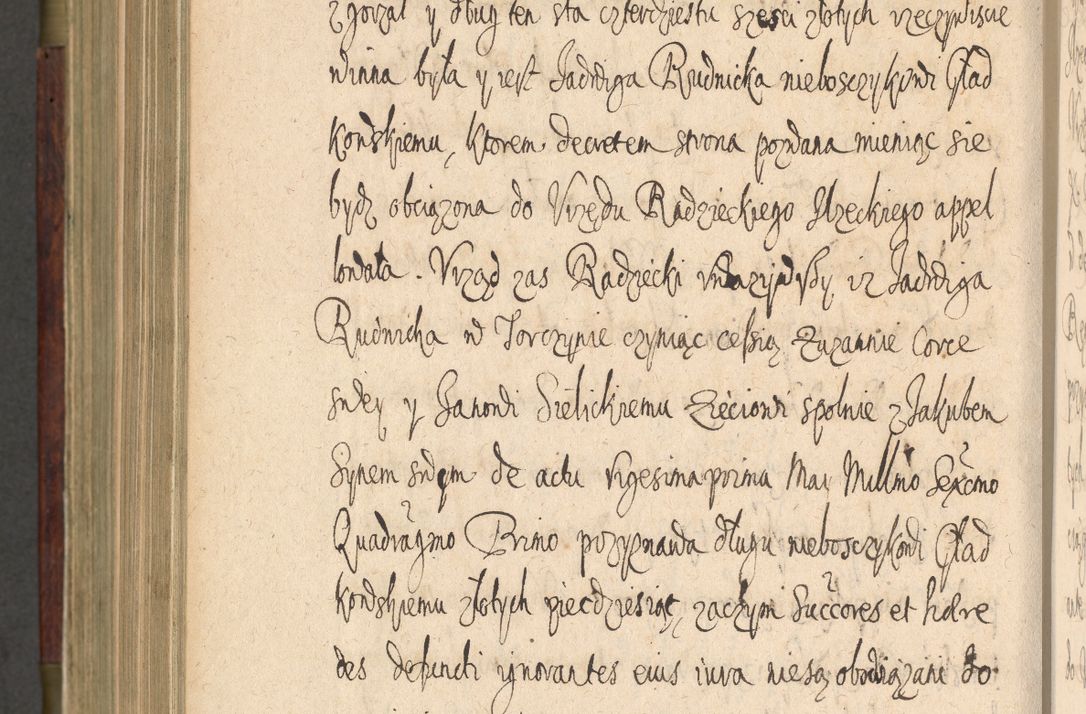 zgorzał y dług ten sta czterdziestu sześci złotych rzeczywiscie
winna była y iest Jadwiga Rudnicka nieboszczykowi Gład
kowskiemu, ktorem decretem strona pozwana mieniąc sie
bydz obciązona do Vrzędu Radzieckiego Ilzeckiego appel
lowała. Vrząd zas Radziecki vwazywszy iz Jadwiga
Rudnicka w Torczynie czyniąc cessią Zuzannie Corce
swey y Janowi Sielickiemu Zieciowi spolnie z Jakubem
Synem swym de actu vigesima prima Maij Millmo Sexcmo
Quadragmo Primo przyznawa długu nieboszczykowi Gład
kowskiemu złotych pięcdziesiąt, zaczym Succores et hære
des defuncti ignorantes eius iura niesą obowiązani do